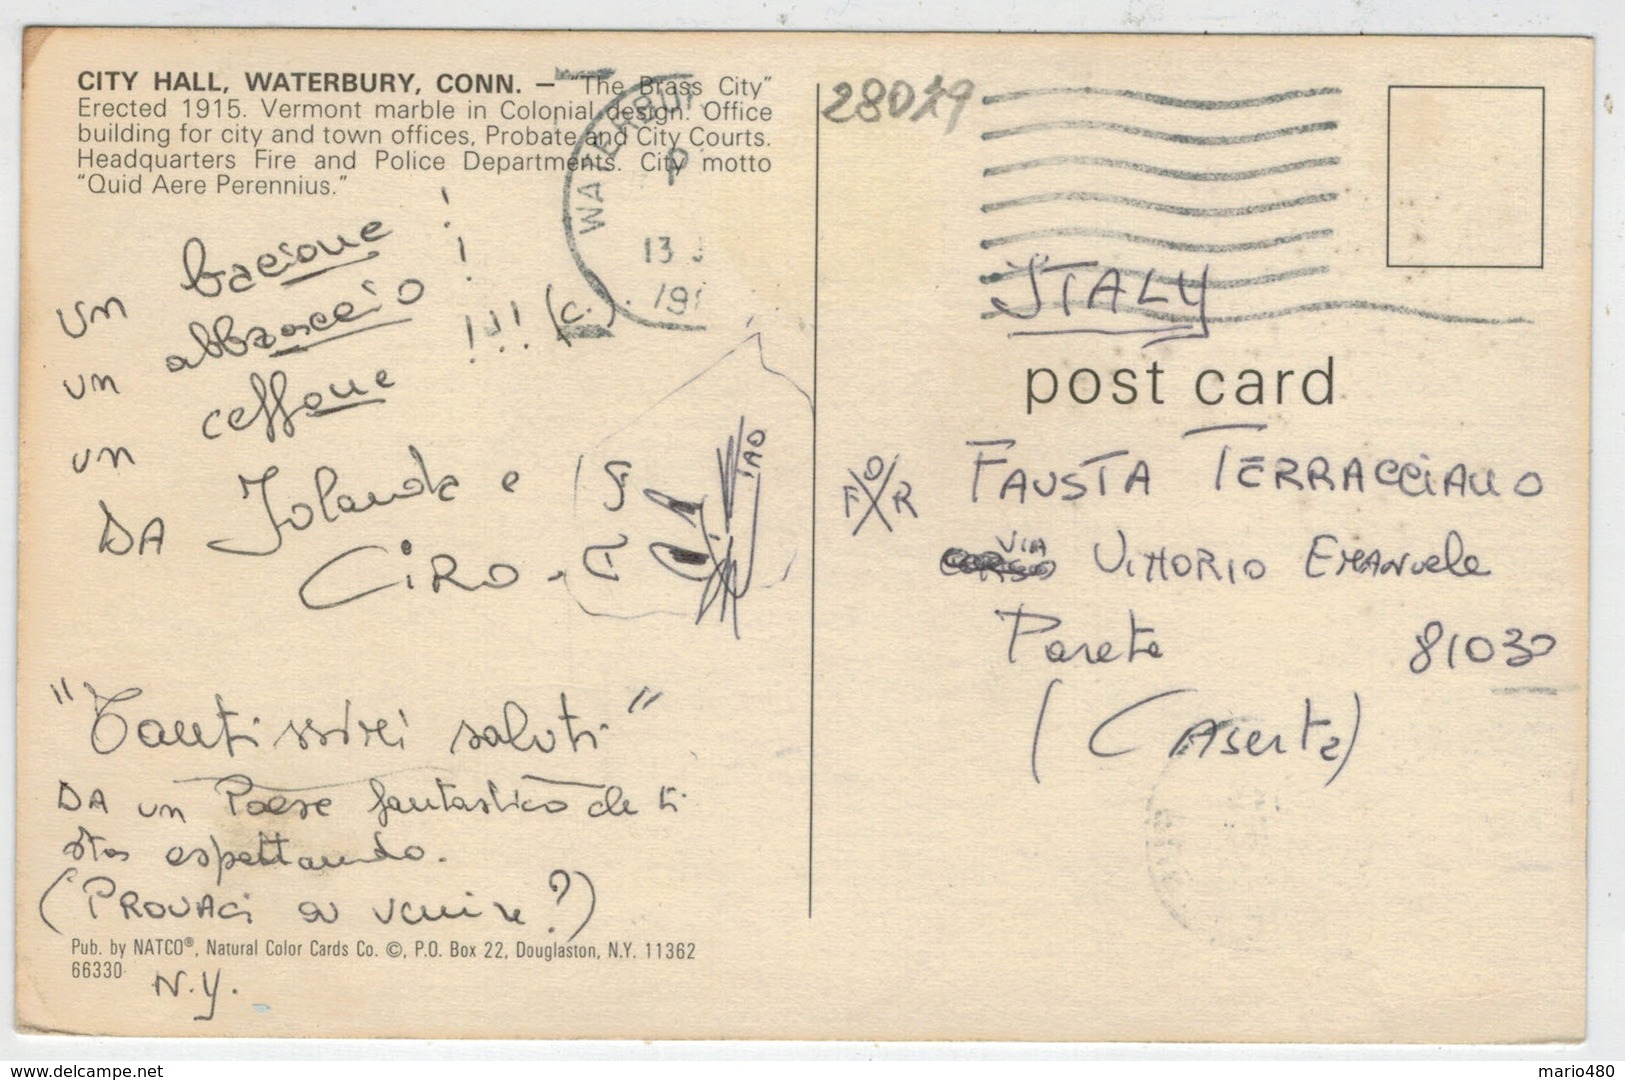 CITY HALL, WATERBURY, CONN. — "The Brass City"
Erected 1915. Vermont marble in Colonial design. Office
building for city and town offices, Probate and City Courts.
Headquarters Fire and Police Departments. City motto
"Quid Aere Perennius."
WATERBUR
P
13 J
19
un bacione !
un abbraccio !
un ceffone !!! (C.)
DA Jolanda e
CIRO.
CIAO
"Tantissimi saluti"
DA un Paese fantastico che ti
sta aspettando.
(PROVACI a venire?)
N.Y.
Pub. by NATCO®, Natural Color Cards Co. ©, P.O. Box 22, Douglaston, N.Y. 11362
66330
ITALY
post card
FOR FAUSTA TERRACCIANO
VIA VITTORIO EMANuele
Parete 81030
(CAserta)
delcampe.net
mario480